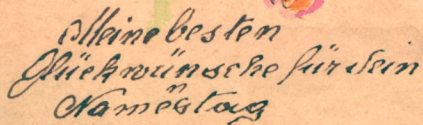 Meine besten
Glückwünsche für dein
Namestag